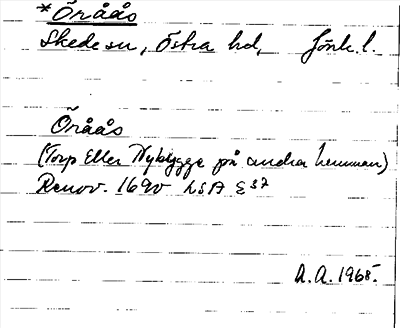 *Öråås
Skede sn, Östra hd, Jönk. l.
Öråås
(Torp Eller Nybygge på andra hemman)
Renov. 1690 LSA E37
A.A. 1968.